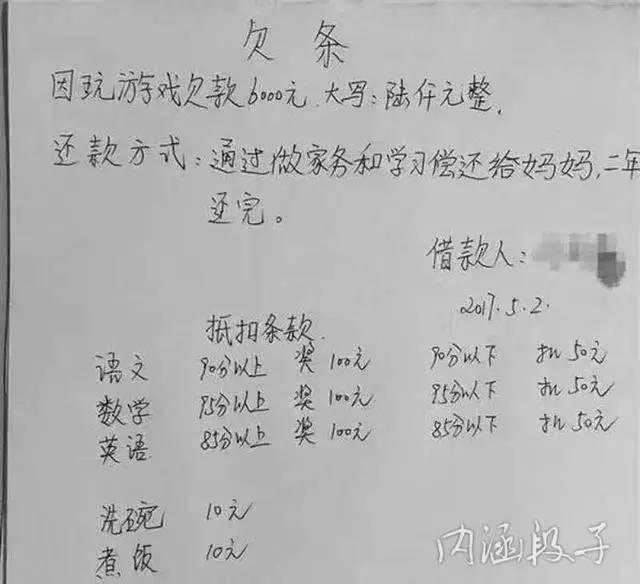 欠条
因玩游戏欠款6000元.大写:陆仟元整.
还款方式:通过做家务和学习偿还给妈妈,二年
还完。
借款人:
2017.5.2.
抵扣条款.
语文 90分以上 奖100元 90分以下 扣50元
数学 95分以上 奖100元 95分以下 扣50元
英语 85分以上 奖100元 85分以下 扣50元
洗碗 10元
煮饭 10元
内涵段子